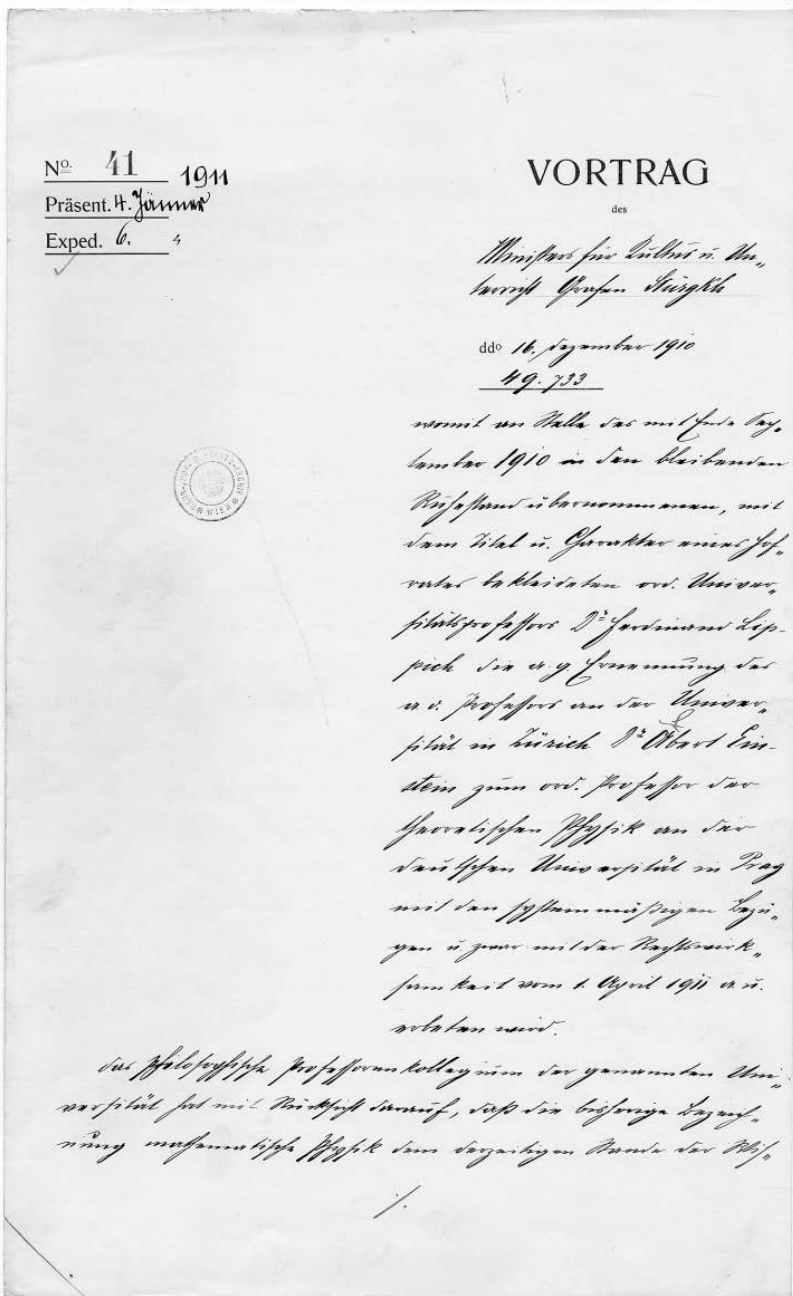 No. 41 1911
Präsent. 4. Jänner
Exped. 6. "
VORTRAG
des
Ministers für Kultus u. Un„
terricht Grafen Stürgkh
ddo 16. Dezember 1910
49.733
womit an Stelle des mit Ende Sep„
tember 1910 in den bleibenden
Ruhestand übernommenen, mit
dem Titel u. Charakter eines Hof„
rates bekleideten ord. Univer„
sitätsprofessors Dr Ferdinand Lip-
pich die a.g. Ernennung des
a.o. Professors an der Univer„
sität in Zürich Dr Albert Ein-
stein zum ord. Professor der
theoretischen Physik an der
deutschen Universität in Prag
mit den systemmäßigen Bezü„
gen u. zwar mit der Rechtswirk„
samkeit vom 1. April 1911 a.u.
erbeten wird.
Das philosophische Professorenkollegium der genannten Uni„
versität hat mit Rücksicht darauf, daß die bisherige Bezeich„
nung mathematische Physik dem derzeitigen Stande der Wis„
./.